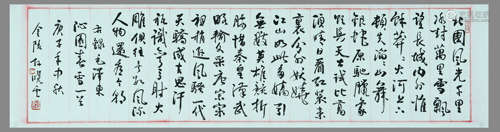 北國風光千里
冰封萬里雪飄
望長城內外惟
餘莽莽大河上下
頓失滔滔山舞
銀蛇原馳臘象
欲與天公試比高
須晴日看紅裝素
裹分外妖嬈
江山如此多嬌引
無數英雄競折
腰惜秦皇漢武
略輸文采唐宗宋
祖稍遜風騷一代
天驕成吉思汗
只識彎弓射大
雕俱往矣數風流
人物還看今朝
右錄毛澤東
沁園春雪一首
庚子年中秋
金陵